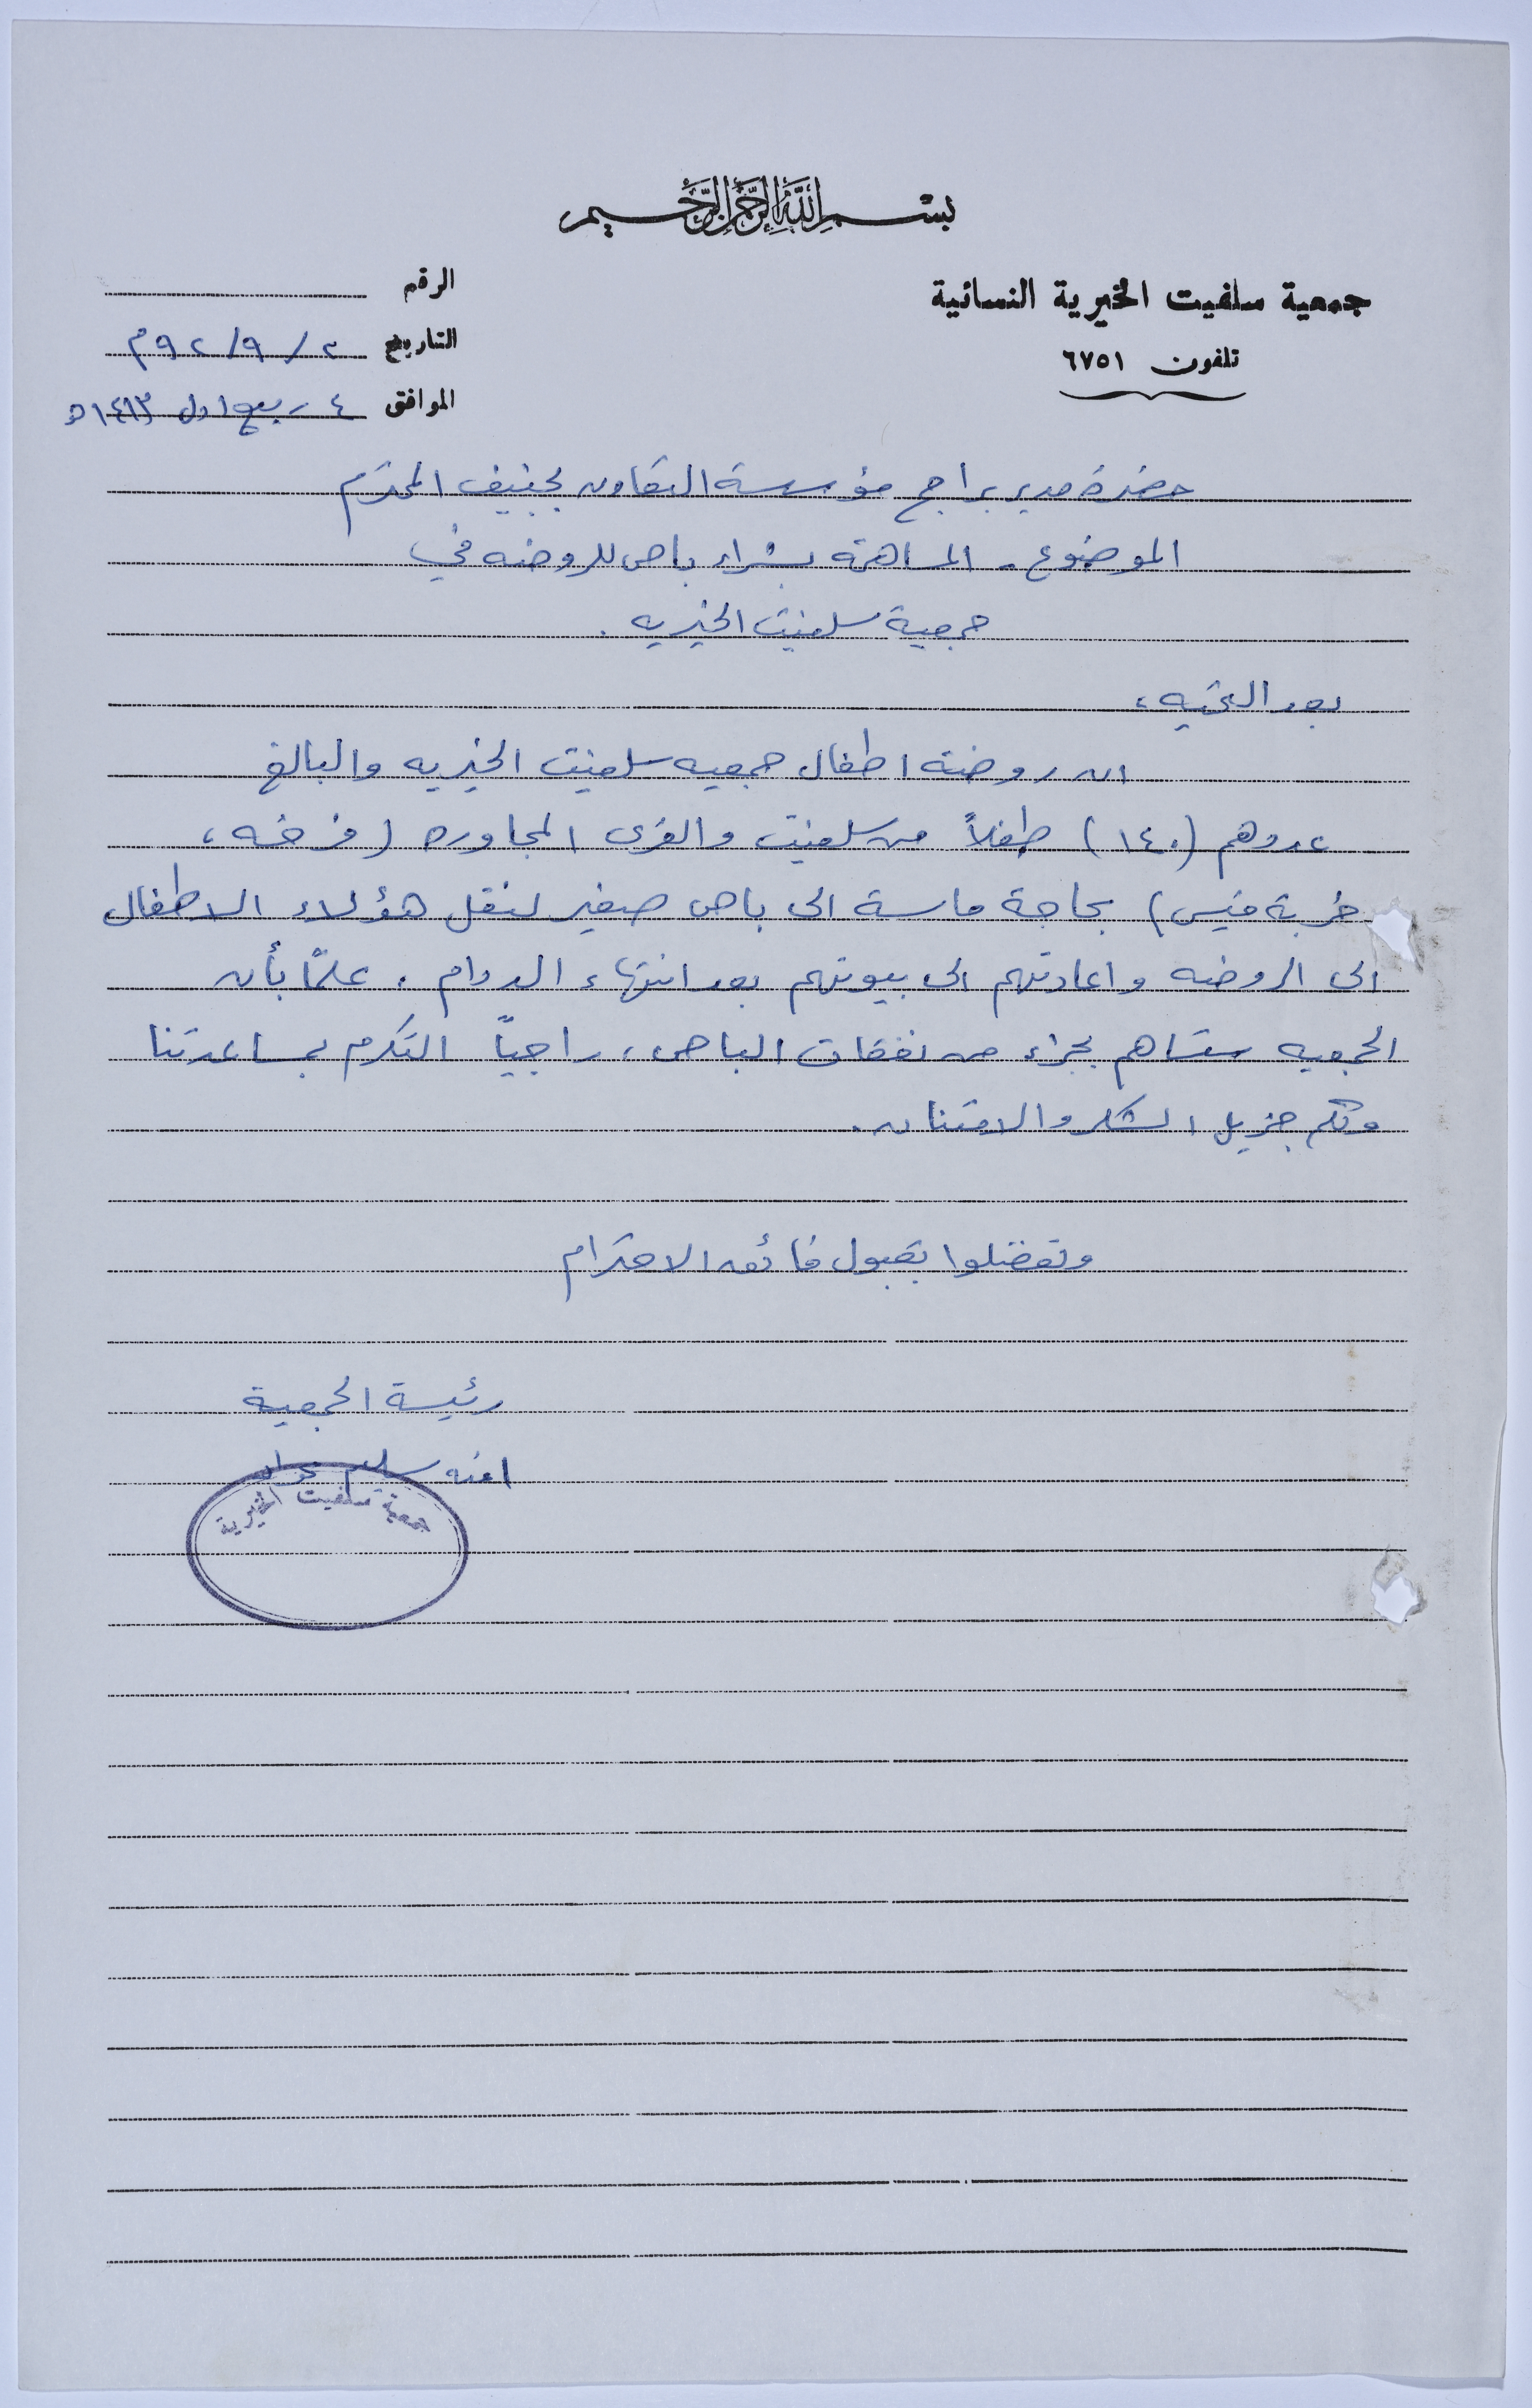 بسم الله الرحمن الرحيم
جمعية سلفيت الخيرية النسائية
تلفون ٦٧٥١
الرقم
التاريخ ٢ / ٩ / ٩٢م
الموافق ٤ ربيع اول ١٤١٣ه
حضرة مدير برامج مؤسسة التعاون بجنيف المحترم
الموضوع - المساهمة بشراء باص للروضه في
جمعية سلفيت الخيريه .
بعد التحيه ،
ان روضة اطفال جمعيه سلفيت الخيريه والبالغ
عددهم (١٤٠) طفلاً من سلفيت والقرى المجاوره (فرخه ،
خربة قيس) بحاجة ماسة الى باص صغير لنقل هؤلاء الاطفال
الى الروضه واعادتهم الى بيوتهم بعد انتهاء الدوام . علمًا بأن
الجمعيه ستساهم بجزء من نفقات الباص ، راجياً التكرم بمساعدتنا
ولكم جزيل الشكر والامتنان .
وتفضلوا بقبول فائق الاحترام
رئيسة الجمعية
امنه سليم
جمعية سلفيت الخيرية